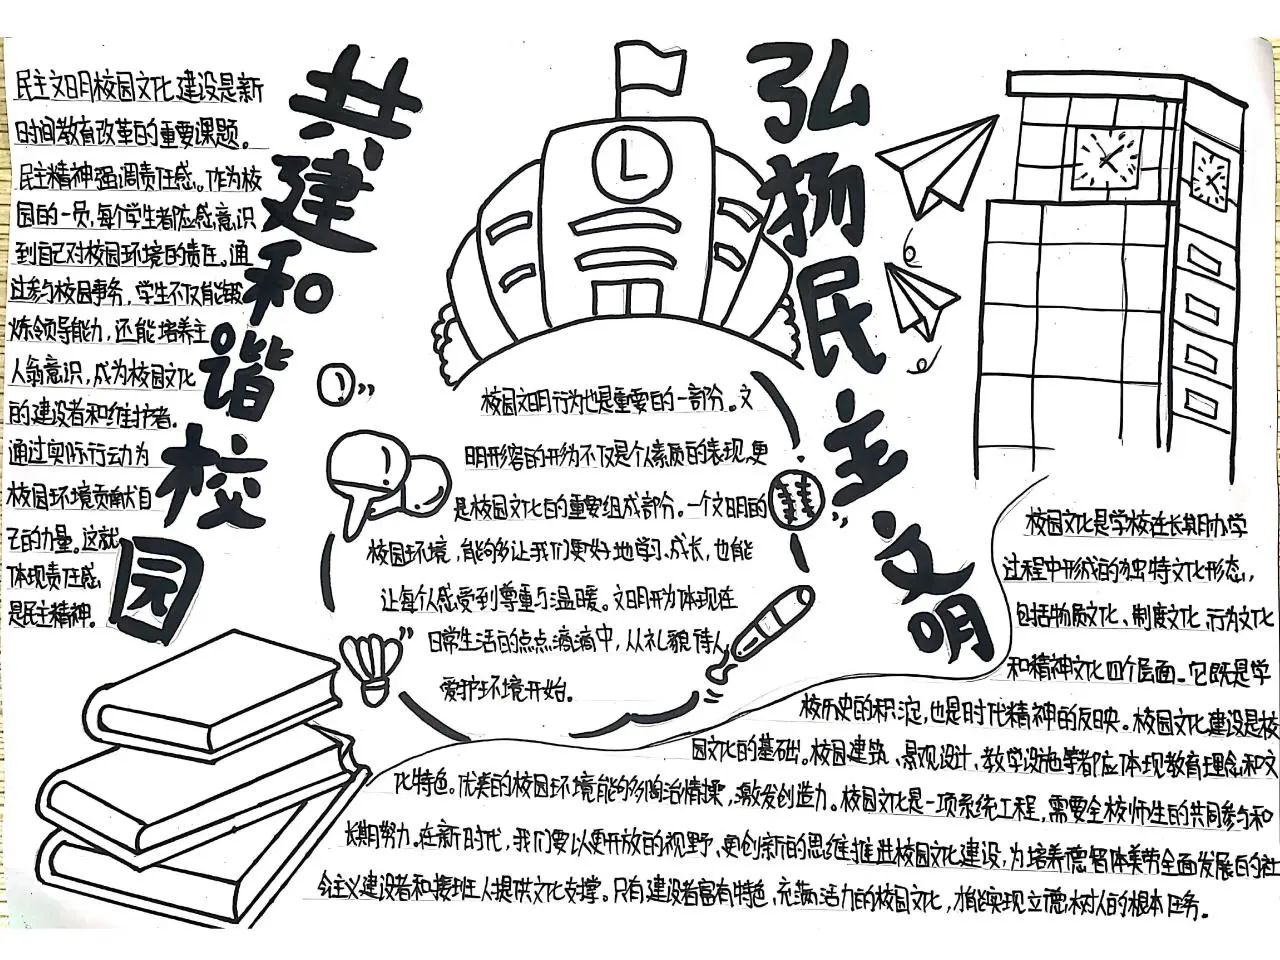 共建和谐校园
弘扬民主文明
民主文明校园文化建设是新
时间教育改革的重要课题。
民主精神强调责任感。作为校
园的一员,每个学生都应感意识
到自己对校园环境的责任。通
过参与校园事务,学生不仅能锻
炼领导能力,还能培养主
人翁意识,成为校园文化
的建设者和维护者。
通过实际行动为
校园环境贡献自
己的力量。这就
体现责任感
是民主精神。
校园文明行为也是重要的一部分。文
明形容的形为不仅是个人素质的表现,更
是校园文化的重要组成部分。一个文明的
校园环境,能够让我们更好地学习、成长,也能
让每个人感受到尊重与温暖。文明行为体现在
日常生活的点点滴滴中,从礼貌待人
爱护环境开始。
校园文化是学校在长期办学
过程中形成的独特文化形态,
包括物质文化、制度文化、行为文化
和精神文化四个层面。它既是学
校历史的积淀,也是时代精神的反映。校园文化建设是校
园文化的基础。校园建筑、景观设计、教学设施等都应体现教育理念和文
化特色。优美的校园环境能够陶冶情操,激发创造力。校园文化是一项系统工程,需要全校师生的共同参与和
长期努力。在新时代,我们要以更开放的视野、更创新的思维推进校园文化建设,为培养德智体美劳全面发展的社
会主义建设者和接班人提供文化支撑。只有建设者富有特色、充满活力的校园文化,才能实现立德树人的根本任务。